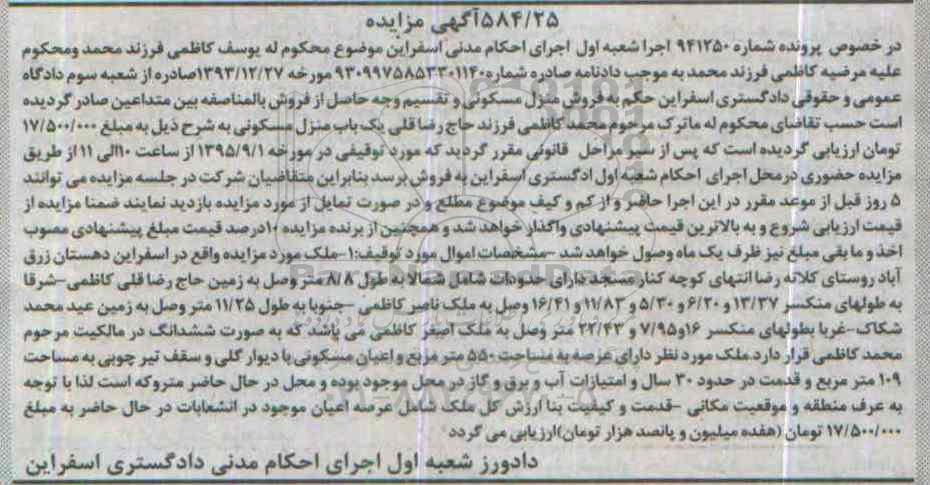 ۵۸۴/۲۵آگهی مزایده
در خصوص پرونده شماره ۹۴۱۲۵۰ اجرا شعبه اول اجرای احکام مدنی اسفراین موضوع محکوم له یوسف کاظمی فرزند محمد ومحکوم
علیه مرضیه کاظمی فرزند محمد به موجب دادنامه صادره شماره۹۳۰۹۹۷۵۸۵۳۳۰۱۱۴۰ مورخه ۱۳۹۳/۱۲/۲۷صادره از شعبه سوم دادگاه
عمومی و حقوقی دادگستری اسفراین حکم به فروش منزل مسکونی و تقسیم وجه حاصل از فروش بالمناصفه بین متداعین صادر گردیده
است حسب تقاضای محکوم له ماترک مرحوم محمد کاظمی فرزند حاج رضا قلی یک باب منزل مسکونی به شرح ذیل به مبلغ ۱۷/۵۰۰/۰۰۰
تومان ارزیابی گردیده است که پس از سیر مراحل قانونی مقرر گردید که مورد توقیفی در مورخه ۱۳۹۵/۹/۱ از ساعت ۱۰الی ۱۱ از طریق
مزایده حضوری درمحل اجرای احکام شعبه اول ادگستری اسفراین به فروش برسد بنابراین متقاضیان شرکت در جلسه مزایده می توانند
۵ روز قبل از موعد مقرر در این اجرا حاضر و از کم و کیف موضوع مطلع و در صورت تمایل از مورد مزایده بازدید نمایند ضمنا مزایده از
قیمت ارزیابی شروع و به بالاترین قیمت پیشنهادی واگذار خواهد شد و همچنین از برنده مزایده ۱۰درصد قیمت مبلغ پیشنهادی مصوب
اخذ و ما بقی مبلغ نیز ظرف یک ماه وصول خواهد شد –مشخصات اموال مورد توقیف:۱–ملک مورد مزایده واقع در اسفراین دهستان زرق
آباد روستای کلاته رضا انتهای کوچه کنار مسجد دارای حدودات شامل شمالا به طول ۸/۸ متر وصل به زمین حاج رضا قلی کاظمی–شرقا
به طولهای منکسر ۱۳/۳۷ و ۶/۲۰ و ۵/۳۰ و ۱۱/۸۳ و ۱۶/۴۱ وصل به ملک ناصر کاظمی –جنوبا به طول ۱۱/۲۵ متر وصل به زمین عید محمد
شکاک–غربا بطولهای منکسر ۱۶و۷/۹۵ و ۲۲/۴۳ متر وصل به ملک اصغر کاظمی می باشد که به صورت ششدانگ در مالکیت مرحوم
محمد کاظمی قرار دارد.ملک مورد نظر دارای عرصه به مساحت ۵۵۰ متر مربع و اعیان مسکونی با دیوار گلی و سقف تیر چوبی به مساحت
۱۰۹ متر مربع و قدمت در حدود ۳۰ سال و امتیازات آب و برق و گاز در محل موجود بوده و محل در حال حاضر متروکه است لذا با توجه
به عرف منطقه و موقعیت مکانی –قدمت و کیفیت بنا ارزش کل ملک شامل عرصه اعیان موجود در انشعابات در حال حاضر به مبلغ
۱۷/۵۰۰/۰۰۰ تومان (هفده میلیون و پانصد هزار تومان)ارزیابی می گردد
دادورز شعبه اول اجرای احکام مدنی دادگستری اسفراین
ParsNamadData